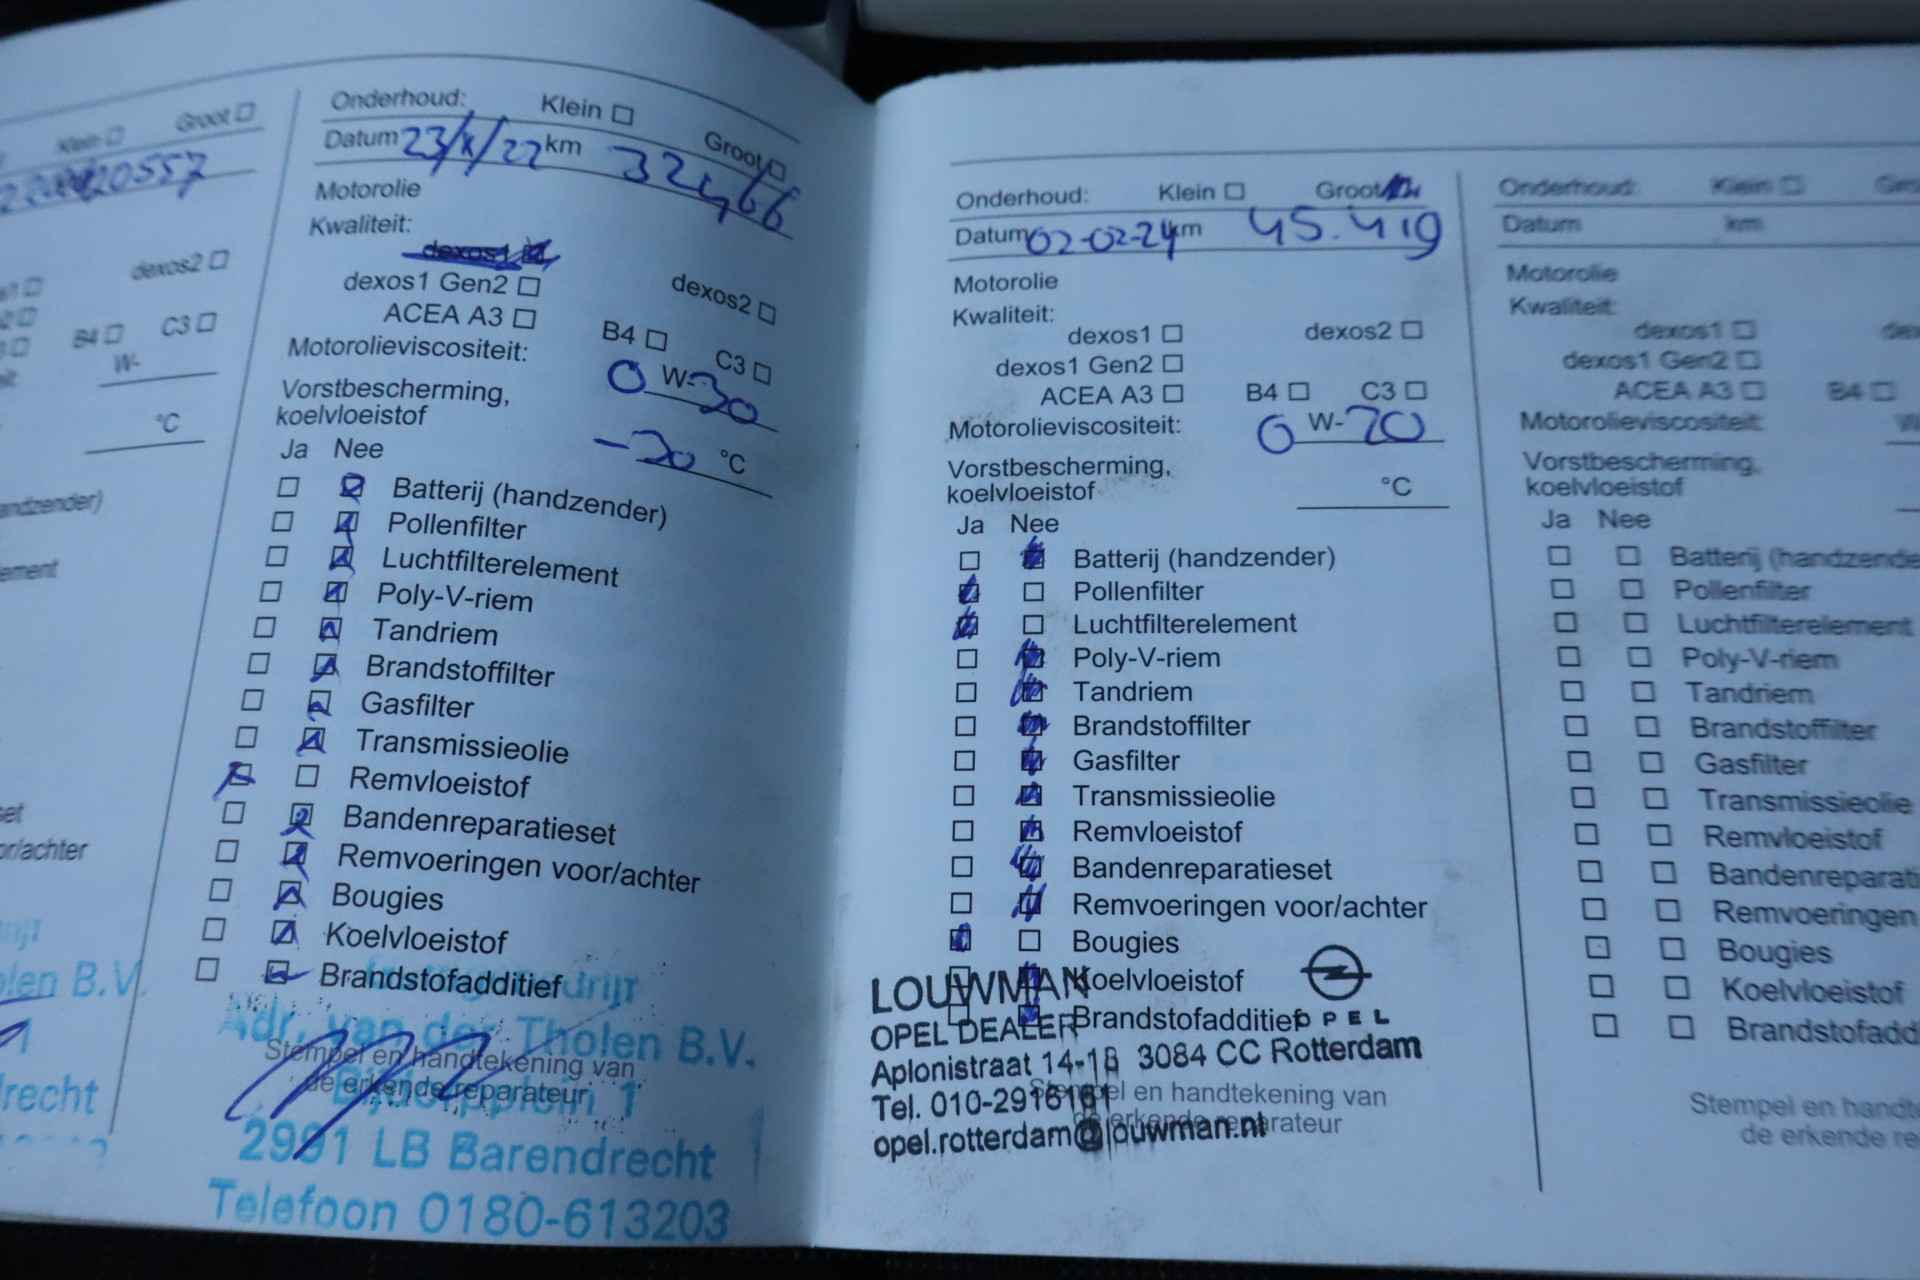 Klein Groot
20557
dexos2
B4 C3
W-
°C
andzender)
ement
set
or/achter
olen B.V.
drecht
Onderhoud: Klein Groot
Datum 23/X/22 km 32466
Motorolie
Kwaliteit:
dexos1
dexos1 Gen2 dexos2
ACEA A3 B4 C3
Motorolieviscositeit: 0 W-30
Vorstbescherming,
koelvloeistof -30 °C
Ja Nee
Batterij (handzender)
Pollenfilter
Luchtfilterelement
Poly-V-riem
Tandriem
Brandstoffilter
Gasfilter
Transmissieolie
Remvloeistof
Bandenreparatieset
Remvoeringen voor/achter
Bougies
Koelvloeistof
Brandstofadditief
Adr. van der Tholen B.V.
Stempel en handtekening van
de erkende reparateur
1
2991 LB Barendrecht
Telefoon 0180-613203
Onderhoud: Klein Groot
Datum 02-02-24 km 45.419
Motorolie
Kwaliteit:
dexos1 dexos2
dexos1 Gen2
ACEA A3 B4 C3
Motorolieviscositeit: 0 W-20
Vorstbescherming,
koelvloeistof °C
Ja Nee
Batterij (handzender)
Pollenfilter
Luchtfilterelement
Poly-V-riem
Tandriem
Brandstoffilter
Gasfilter
Transmissieolie
Remvloeistof
Bandenreparatieset
Remvoeringen voor/achter
Bougies
Koelvloeistof
Brandstofadditief
LOUWMAN
OPEL DEALER OPEL
Aplonistraat 14-18 3084 CC Rotterdam
Tel. 010-2916161
opel.rotterdam@louwman.nl
Stempel en handtekening van
de erkende reparateur
Onderhoud: Klein Gro
Datum km
Motorolie
Kwaliteit:
dexos1 de
dexos1 Gen2
ACEA A3 B4
Motorolieviscositeit: W
Vorstbescherming,
koelvloeistof
Ja Nee
Batterij (handzende
Pollenfilter
Luchtfilterelement
Poly-V-riem
Tandriem
Brandstoffilter
Gasfilter
Transmissieolie
Remvloeistof
Bandenreparati
Remvoeringen
Bougies
Koelvloeistof
Brandstofadd
Stempel en handt
de erkende re